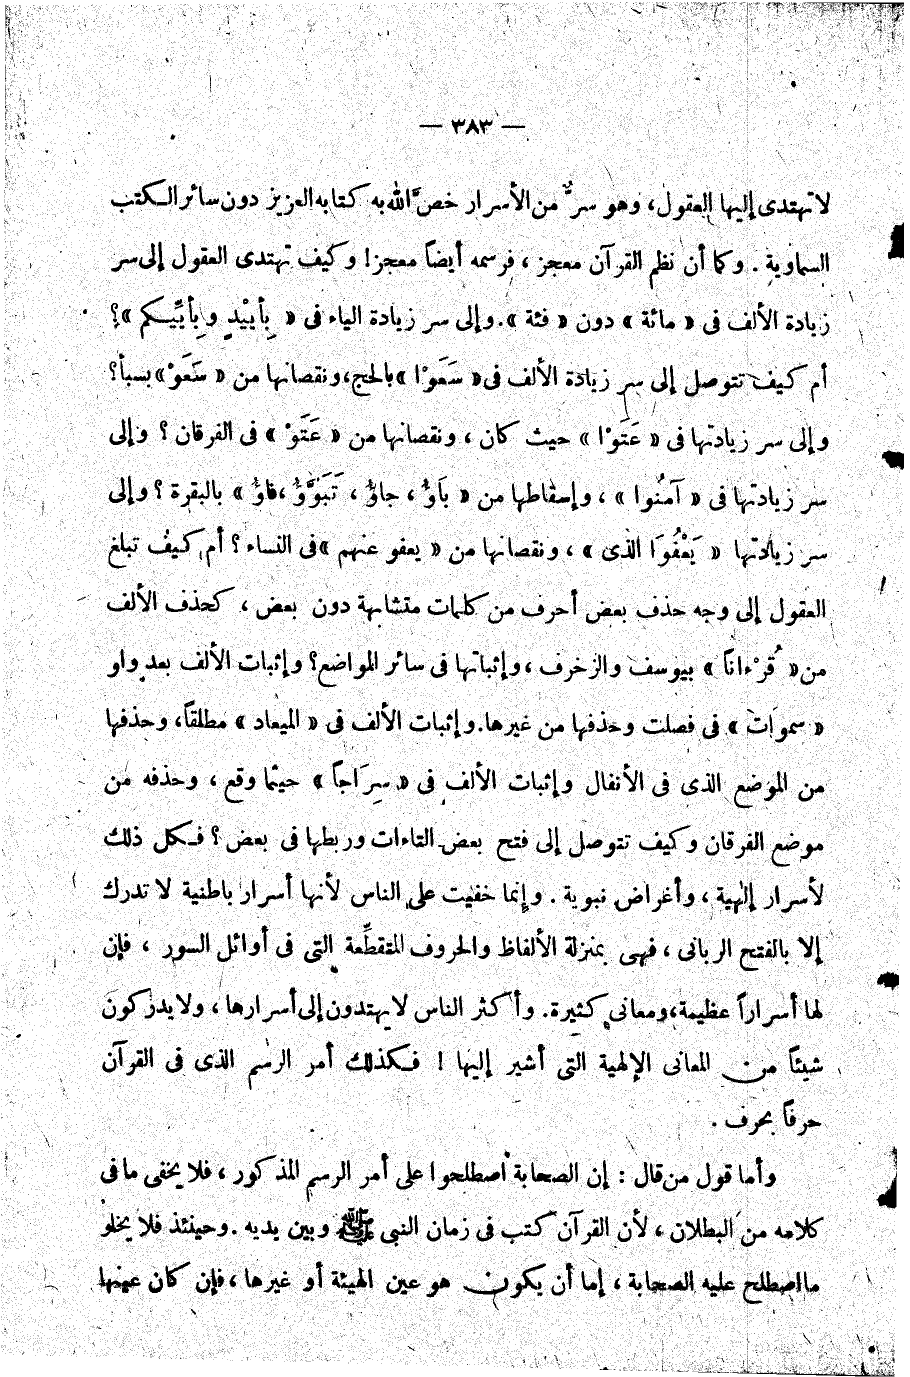 — ٣٨٣ —
لا تهتدى إليها العقول، وهو سرٌّ من الأسرار خصَّ الله به كتابه العزيز دون سائر الكتب
السماوية . وكما أن نظم القرآن معجز ، فرسمه أيضاً معجز! وكيف تهتدى العقول إلى سر
زيادة الألف فى « مائة » دون « فئة ». وإلى سر زيادة الياء فى « بِأَييْدٍ وبِأَييِّكم »؟
أم كيف تتوصل إلى سر زيادة الألف فى « سَعَوْا » بالحج، ونقصانها من « سَعَوْ » بسبأ؟
وإلى سر زيادتها فى « عَتَوْا » حيث كان ، ونقصانها من « عَتَوْ » فى الفرقان ؟ وإلى
سر زيادتها فى « آمَنُوا » ، وإسقاطها من « بَاَؤُ ، جاؤُ ، تَبَوَّؤُ ، فاؤُ » بالبقرة ؟ وإلى
سر زيادتها « يَعْفُوَا الذى » ، ونقصانها من « يعفو عنهم » فى النساء ؟ أم كيف تبلغ
العقول إلى وجه حذف بعض أحرف من كلمات متشابهة دون بعض ، كحذف الألف
من « قُرْءاناً » بيوسف والزخرف ، وإثباتها فى سائر المواضع؟ وإثبات الألف بعد واو
« سموات » فى فصلت وحذفها من غيرها. وإثبات الألف فى « الميعاد » مطلقاً، وحذفها
من الموضع الذى فى الأنفال وإثبات الألف فى « سِرَاجاً » حيثما وقع ، وحذفه من
موضع الفرقان وكيف تتوصل إلى فتح بعض التاءات وربطها فى بعض ؟ فكل ذلك
لأسرار إلهية ، وأغراض نبوية . وإنما خفيت على الناس لأنها أسرار باطنية لا تدرك
إلا بالفتح الربانى ، فهى بمنزلة الألفاظ والحروف المتقطِّعة التى فى أوائل السور ، فإن
لها أسراراً عظيمة، ومعانى كثيرة. وأكثر الناس لا يهتدون إلى أسرارها ، ولا يدركون
شيئاً من المعانى الإلهية التى أشير إليها ! فكذلك أمر الرسم الذى فى القرآن
حرفاً بحرف .
وأما قول من قال : إن الصحابة اصطلحوا على أمر الرسم المذكور ، فلا يخفى ما فى
كلامه من البطلان ، لأن القرآن كتب فى زمان النبى ﷺ وبين يديه . وحينئذ فلا يخلو
ما اصطلح عليه الصحابة ، إما أن يكون هو عين الهيئة أو غيرها ، فإن كان عينها